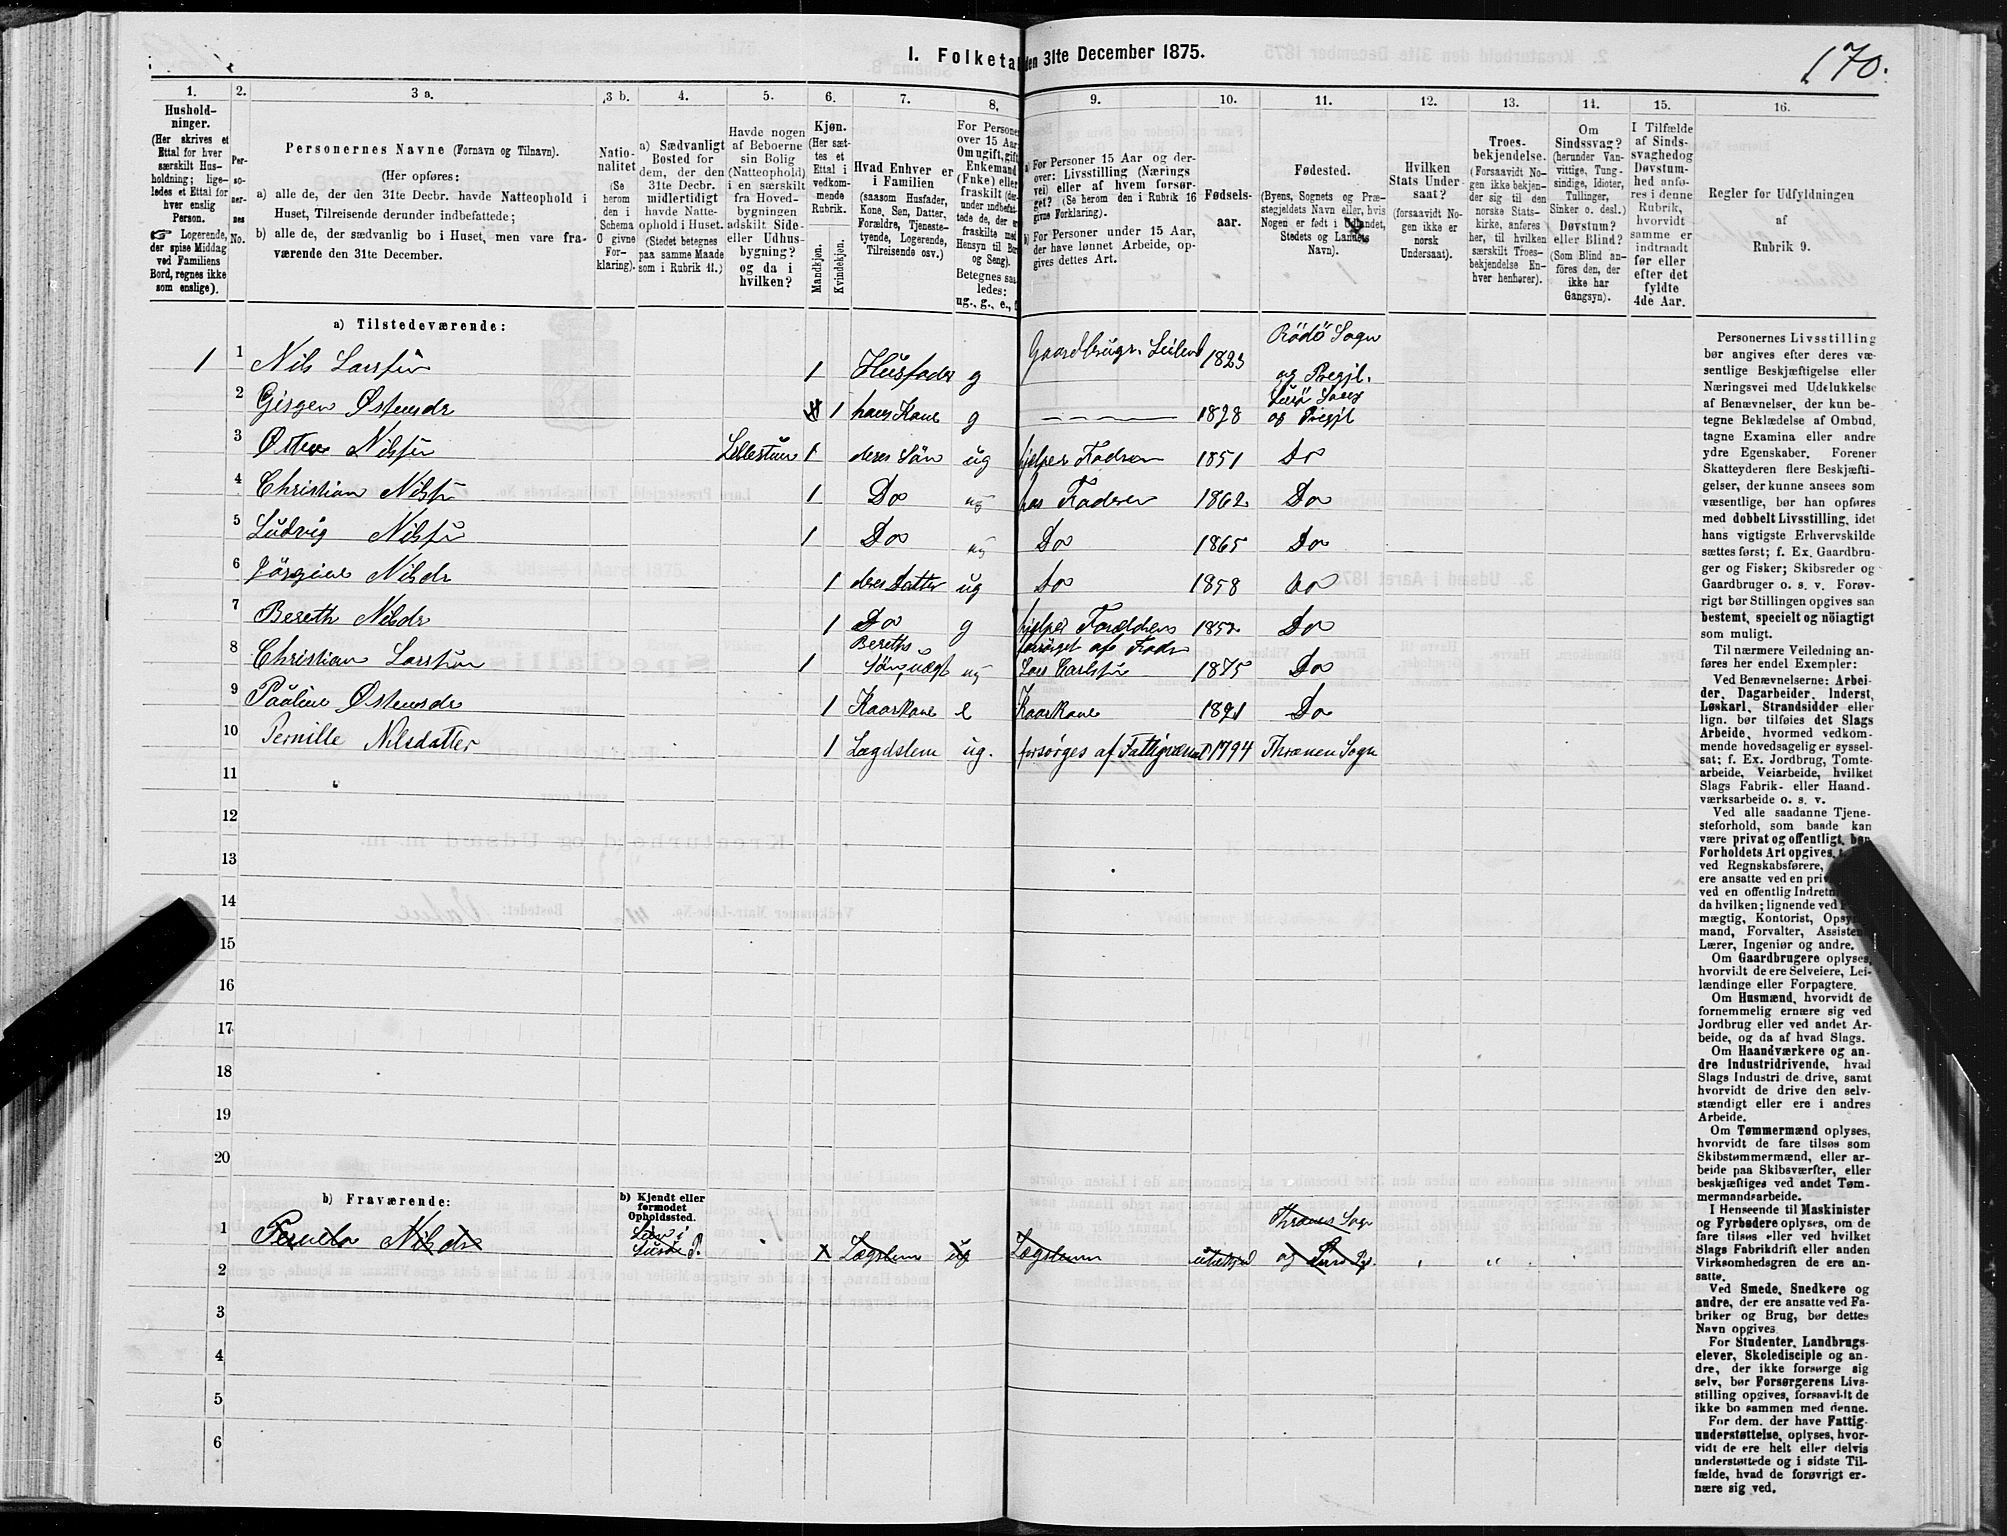 170.
I. Folketal den 31te December 1875.
1. 2. 3 a. 3 b. 4. 5. 6. 7. 8. 9. 10. 11. 12. 13. 14. 15. 16.
Hushold-
ninger.
(Her skrives et
Ettal for hver
særskilt Hus-
holdning; lige-
ledes et Ettal for
hver enslig
Person.
☞ Logerende,
der spise Middag
ved Familiens
Bord, regnes ikke
som enslige).
Per-
so-
ner-
nes
No.
Personernes Navne (Fornavn og Tilnavn).
(Her opføres:
a) alle de, der den 31te Decbr. havde Natteophold i
Huset, Tilreisende derunder indbefattede;
b) alle de, der sædvanlig bo i Huset, men vare fra-
værende den 31te December.
Natio-
nalitet
(Se
herom
den i
Schema
C givne
For-
klaring).
a) Sædvanligt
Bosted for
dem, der den
31te Decbr.
midlertidigt
havde Natte-
ophold i Huset.
(Stedet betegnes
paa samme Maade
som i Rubrik 11.)
Havde nogen
af Beboerne
sin Bolig
(Natteophold)
i en særskilt
fra Hoved-
bygningen
adskilt Side-
eller Udhus-
bygning?
og da i
hvilken?
Kjøn.
(Her sæt-
tes et
Ettal i
vedkom-
mende
Rubrik.
Mandkjøn.
Kvindekjøn.
Hvad Enhver er
i Familien
(saasom Husfader,
Kone, Søn, Datter,
Forældre, Tjeneste-
tyende, Logerende,
Tilreisende osv.)
For Personer
over 15 Aar:
Om ugift, gift,
Enkemand
(Enke) eller
fraskilt
Betegnes saa-
ledes:
ug., g., e.,
a) For Personer 15 Aar og der-
over: Livsstilling (Nærings
vei) eller af hvem forsør-
get? (Se herom den i Rubrik 16
givne Forklaring).
b) For Personer under 15 Aar,
der have lønnet Arbeide, op-
gives dettes Art.
Fødsels-
aar.
Fødested.
(Byens, Sognets og Præ-
stegjeldets Navn eller, hvis
Nogen er født i Udlandet,
Stedets og Landets
Navn).
Hvilken
Stats Under-
saat?
(forsaavidt No-
gen ikke er
norsk
Undersaat).
Troes-
bekjendelse.
(Forsaavidt No-
gen ikke bekjen-
der sig til den
norske Stats-
kirke, anføres
her, til hvilken
særskilt Troes-
bekjendelse En-
hver henhører).
Om
Sindssvag?
(herunder Van-
vittige, Tung-
sindige, Idioter,
Tullinger,
Sinker o. desl.)
Døvstum?
eller Blind?
(Som Blind an-
føres den, der
ikke har
Gangsyn).
I Tilfælde
af Sinds-
svaghed og
Døvstum-
hed anfø-
res i denne
Rubrik,
hvorvidt
samme er
indtraadt
før eller
efter det
fyldte
4de Aar.
Regler for Udfyldningen
af
Rubrik 9.
a) Tilstedeværende:
1 1 Nils Larsen 1 Husfader g Gaardbruger Leilend 1823 Rödö Sogn og Pregjl.
2 Østensdr 1 hans Kone g 1828 Lurö Sogn og Pregjl
3 Østen Nilsen Lillestuen 1 deres Sön ug hjelper Faderen 1851 Do
4 Christian Nilsen 1 Do ug hos Faderen 1862 Do
5 Ludvig Nilsen 1 Do ug Do 1865 Do
6 Jörgine Nilsdr 1 deres Datter ug Do 1858 Do
7 Bereth Nilsdr 1 Do g hjelper Forældrene 1852 Do
8 Christian Larssen 1 Bereths Sön, uægt ug forsörget af Fadr Lars Carlsen 1875 Do
9 Pauline Østensdr 1 Kaarkone e Kaarkone 1821 Do
10 Pernille Nilsdatter 1 Lægdslem ug. forsørges af Fattigvæsenet 1794 Thrænen Sogn
11
12
13
14
15
16
17
18
19
20
b) Fraværende:
b) Kjendt eller
formodet
Opholdssted.
1 Pernilla Nilsdr i Lurö P. x Lægslem ug Lægslem Thrænes Sogn og Lurö Pr.
2
3
4
5
6
Personernes Livsstilling
bør angives efter deres væ-
sentlige Beskjæftigelse eller
Næringsvei med Udelukkelse
af Benævnelser, der kun be-
tegne Beklædelse af Ombud,
tagne Examina eller andre
ydre Egenskaber. Forener
Skatteyderen flere Beskjæfti-
gelser, der kunne ansees som
væsentlige, bør han opføres
med dobbelt Livsstilling, idet
hans vigtigste Erhvervskilde
sættes først; f. Ex. Gaardbru-
ger og Fisker; Skibsreder og
Gaardbruger o. s. v. Forøv-
rigt bør Stillingen opgives saa
bestemt, specielt og nöiagtigt
som muligt.
Til nærmere Veiledning an-
føres her endel Exempler:
Ved Benævnelserne: Arbei-
der, Dagarbeider, Inderst,
Løskarl, Strandsidder eller
lign. bør tilføies det Slags
Arbeide, hvormed vedkom-
mende hovedsagelig er syssel-
sat; f. Ex. Jordbrug, Tomte-
arbeide, Veiarbeide, hvilket
Slags Fabrik- eller Haand-
værksarbeide o. s. v.
Ved alle saadanne Tjene-
steforhold, som baade kan
være privat og offentligt, bør
Forholdets Art opgives,
ved Regnskabsførere,
ere ansatte ved en
ved en offentlig
da hvilken; lignende ved
mægtig, Kontorist,
mand, Forvalter,
Lærer, Ingeniør og andre.
Om Gaardbrugere oplyses,
hvorvidt de ere Selveiere, Lei-
lændinge eller Forpagtere.
Om Husmænd, hvorvidt de
fornemmelig ernære sig ved
Jordbrug eller ved andet Ar-
beide, og da af hvad Slags.
Om Haandværkere og an-
dre Industridrivende, hvad
Slags Industri de drive, samt
hvorvidt de drive den selv-
stændigt eller ere i andres
Arbeide.
Om Tømmermænd oplyses,
hvorvidt de fare tilsøs som
Skibstømmermænd, eller ar-
beide paa Skibsværfter, eller
beskjæftiges ved andet Tøm-
mermandsarbeide.
I Henseende til Maskinister
og Fyrbødere oplyses, om de
fare tilsøs eller ved hvilket
Slags Fabrikdrift eller anden
Virksomhedsgren de ere an-
satte.
Ved Smede, Snedkere og
andre, der ere ansatte ved Fa-
briker og Brug, bør dettes
Navn opgives.
For Studenter, Landbrugs-
elever, Skoledisciple og an-
dre, der ikke forsørge sig
selv, bør Forsørgerens Livs-
stilling opgives, forsaavidt de
ikke bo sammen med denne.
For dem, der have Fattig-
understøttelse, oplyses, hvor-
vidt de ere helt eller delvis
understøttede og i sidste Til-
fælde, hvad de forøvrigt er-
nære sig ved.